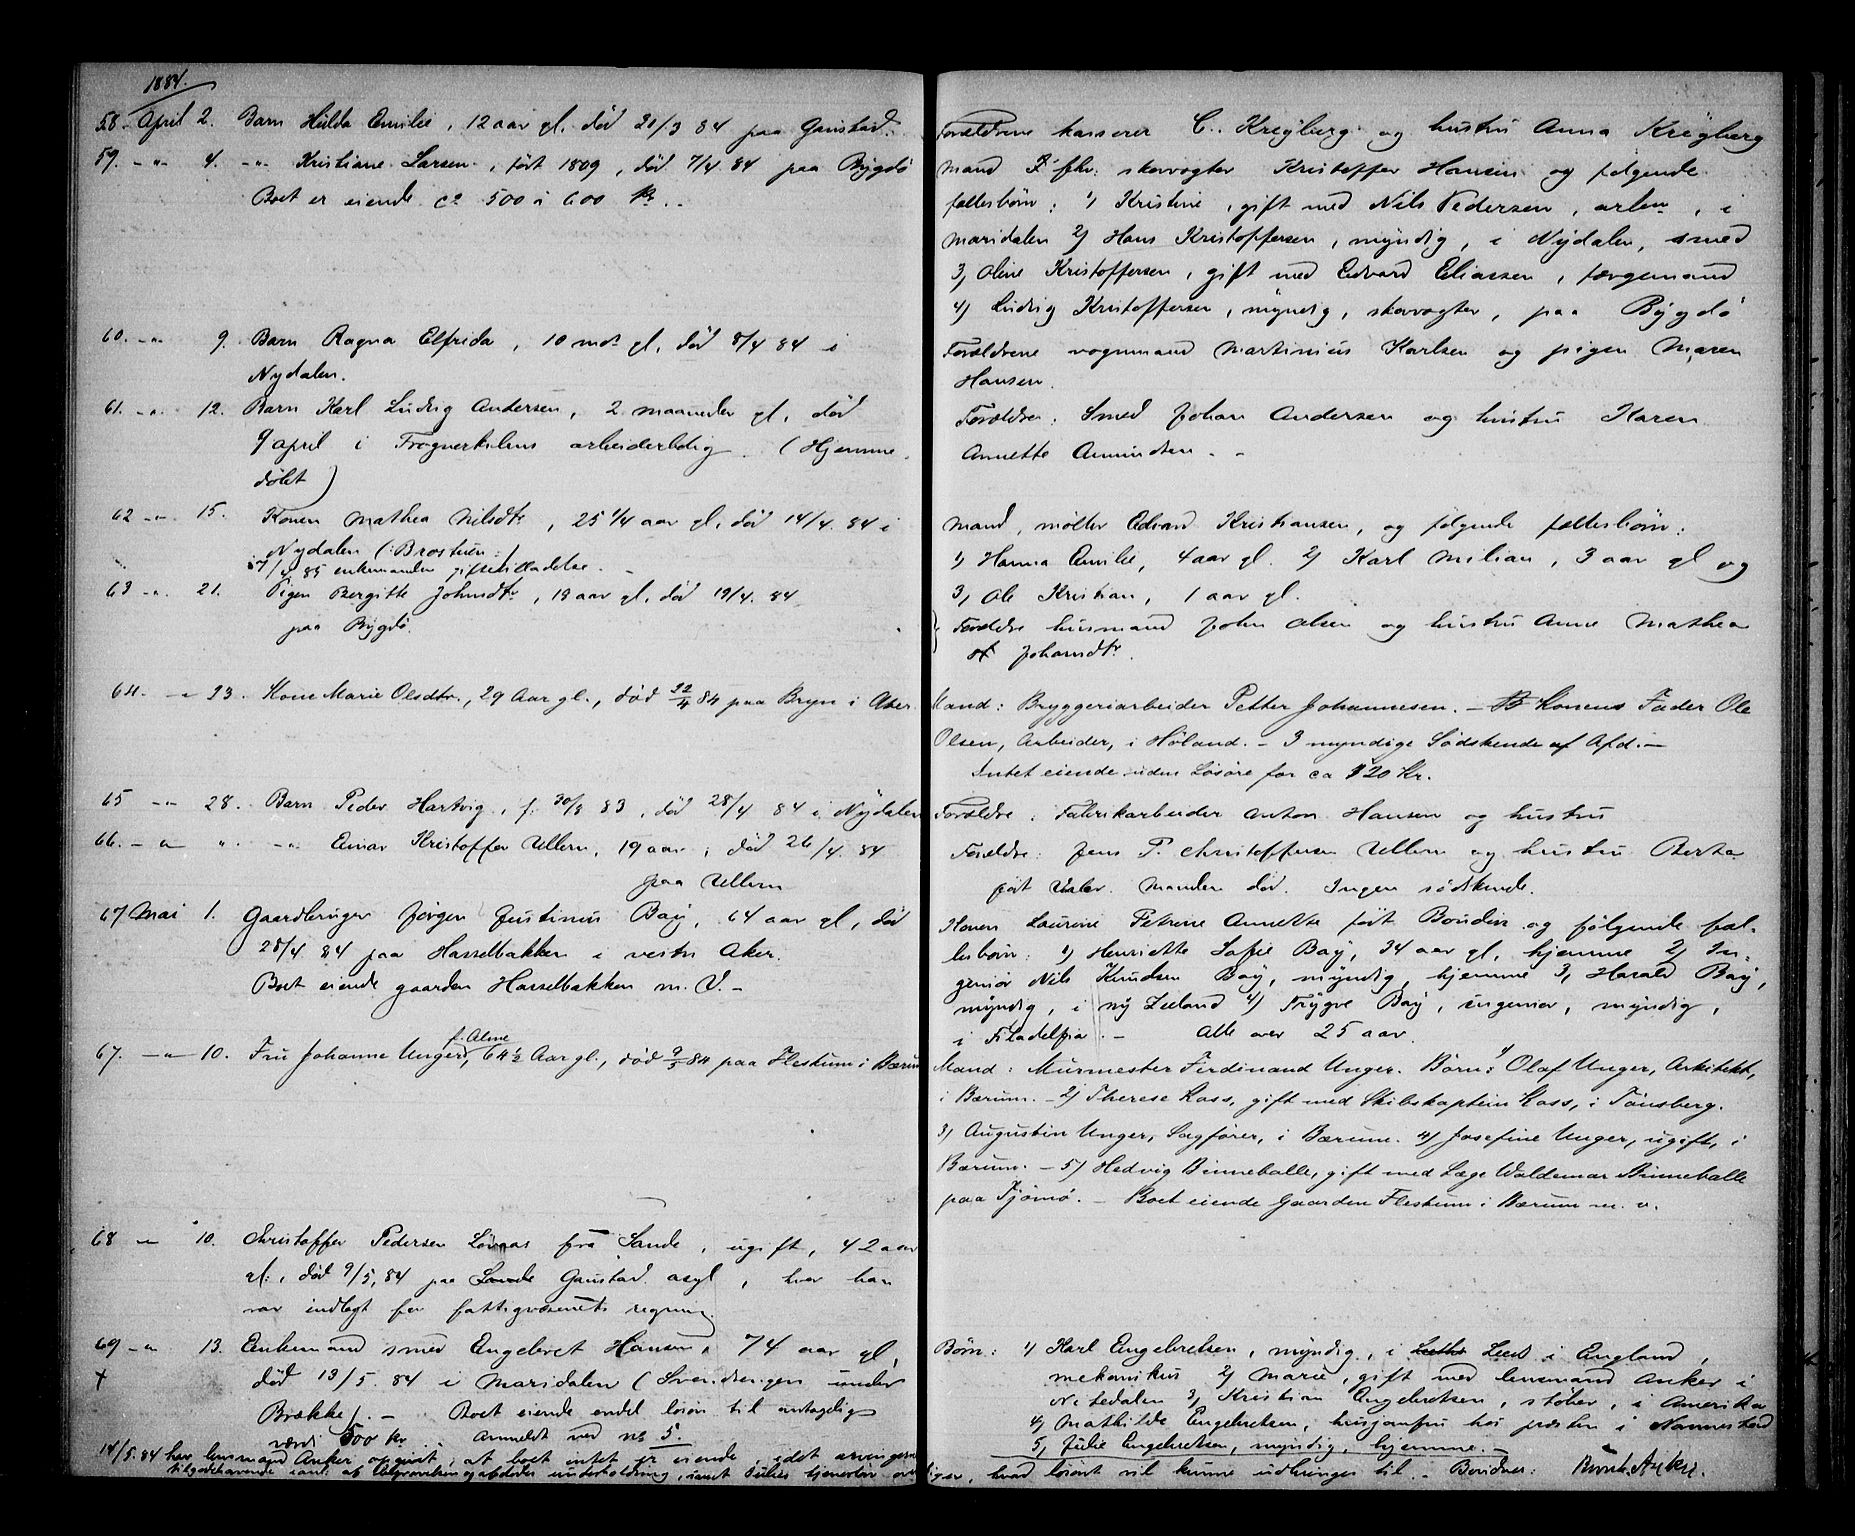 1884.
58. April 2. Barn Hilda Emilie, 12 aar gl. død 21/3 84 paa Gaustad.
59. -"- 4. -"- Kristiane Larsen, født 1809, død 7/4 84 paa Bygdø
Boet er eiende ca 500 à 600 Kr.
60. -"- 9. Barn Ragna Elfrida, 10 mdr gl. død 8/4 84 i
Nydalen.
61. -"- 12. Barn Karl Ludvig Andersen, 2 maaneder gl. død
9 april i Frognerkilens arbeiderbolig. (Hjemme
døbt)
62 -"- 15. Konen Mathea Nilsdtr, 25 1/4 aar gl. død 14/4 84 i
Nydalen (: Brostuen :)
85 enkemanden giftetilladelse. -
63 -"- 21. Pigen Bergitte Johnsdtr, 19 aar gl. død 19/4. 84
paa Bygdø.
64. -"- 23. Kone Marie Olsdtr., 29 Aar gl., død 22/4 84 paa Bryn i Aker
65 -"- 28. Barn Peder Hartvig, f. 30/8 83, død 28/4 84 i Nydalen
66. -"- " -"- Einar Kristoffer Ullern, 19 aar, død 26/4. 84
paa Ullern
67 Mai 1. Gaardbruger Jørgen Justinus Bay, 64 aar gl, død
28/4 84 paa Hasselbakken i vestre Aker.
Boet eiende gaarden Hasselbakken m. V. -
67. -"- 10. Fru Johanne Unger, f. Alme, 64 1/2 Aar gl., død 9/5 84 paa Fleskum i Bærum
68 -"- 10. Christoffer Pedersen Løvaas fra Sande, ugift, 42 aar
gl., død 9/5, 84 paa Sande Gaustad asyl, hvor han
var indlagt for fattigvæsenets regning.
69 -"- 13. Enkemand smed Engebret Hansen, 74 aar gl,
død 13/5. 84 i Maridalen (Svendsengen under
Brække). - Boet eiende endel løsøre til antagelig
værdi 500 kr. Anmeldt ved no 5.
14/5. 84 har lensmand Anker opgivt, at boet intet er eiende, idet arvingerne
Forældrene kasserer C. Krefberg og hustru Anna Krefberg
Mand fhv. skovvogter Kristoffer Hansen og følgende
fællesbørn: 1) Kristine, gift med Nils Pedersen, arb., i
Maridalen 2) Hans Kristoffersen, myndig, i Nydalen, smed
3) Oline Kristoffersen, gift med Edvard Eliassen, færgemand
4) Ludvig Kristoffersen, myndig, skovvogter, paa Bygdø
Forældrene vognmand Martinius Karlsen og pigen Maren
Hansen.
Forældre: Smed Johan Andersen og hustru Karen
Annette Amundsen. -
Mand, møller Edvard Kristiansen, og følgende fællesbørn:
1) Hanna Emilie, 4 aar gl. 2) Karl Milian, 3 aar gl og
3) Ole Kristian, 1 aar gl.
Forældre husmand John Olsen og hustru Anne Mathea
Johansdtr.
Mand: Bryggeriarbeider Petter Johannesen. - Konens Fader Ole
Olsen, Arbeider, i Høland. - 3 myndige Sødskende af Afd. -
Intet eiende uden Løsøre for ca 120 Kr.
Forældre: Fabrikarbeider Anton Hansen og hustru
Forældre: Jens P. Christoffersen Ullern og hustru Berta
født Unlov. Manden død. Ingen sødskende.
Konen Laurine Petrine Annette født Boudin og følgende fæl-
lesbørn: 1) Henriette Sofie Bay, 34 aar gl, hjemme 2) In-
geniør Nils Knudsen Bay, myndig, hjemme 3) Harald Bay,
myndig, i ny Zeeland 4) Trygve Bay, ingeniør, myndig,
i Filadelfia. - Alle over 25 aar.
Mand: Murmester Ferdinand Unger. Børn: 1) Olaf Unger, Arkitekt,
i Bærum. - 2) Therese Kass, gift med Skibskaptein Kass, i Tønsberg.
3) Augustin Unger, Sagfører, i Bærum. 4) Josefine Unger, ugift, i
Bærum. - 5) Hedvig Binneballe, gift med Læge Waldemar Binneballe
paa Tjømø. - Boet eiende Gaarden Fleskum i Bærum m. v.
Børn: 1) Karl Engebretsen, myndig, i Leeds i England,
mekanikus 2) Marie, gift med lensmand Anker i
N. Aadalen 3) Kristian Engebretsen, støber, i Amerika
4) Mathilde Engebretsen, husjomfru hos præsten i Nannestad
5) Julie Engebretsen, myndig, hjemme. -
hvad løsøret vil kunne udbringes til. - Bondner: Anker.